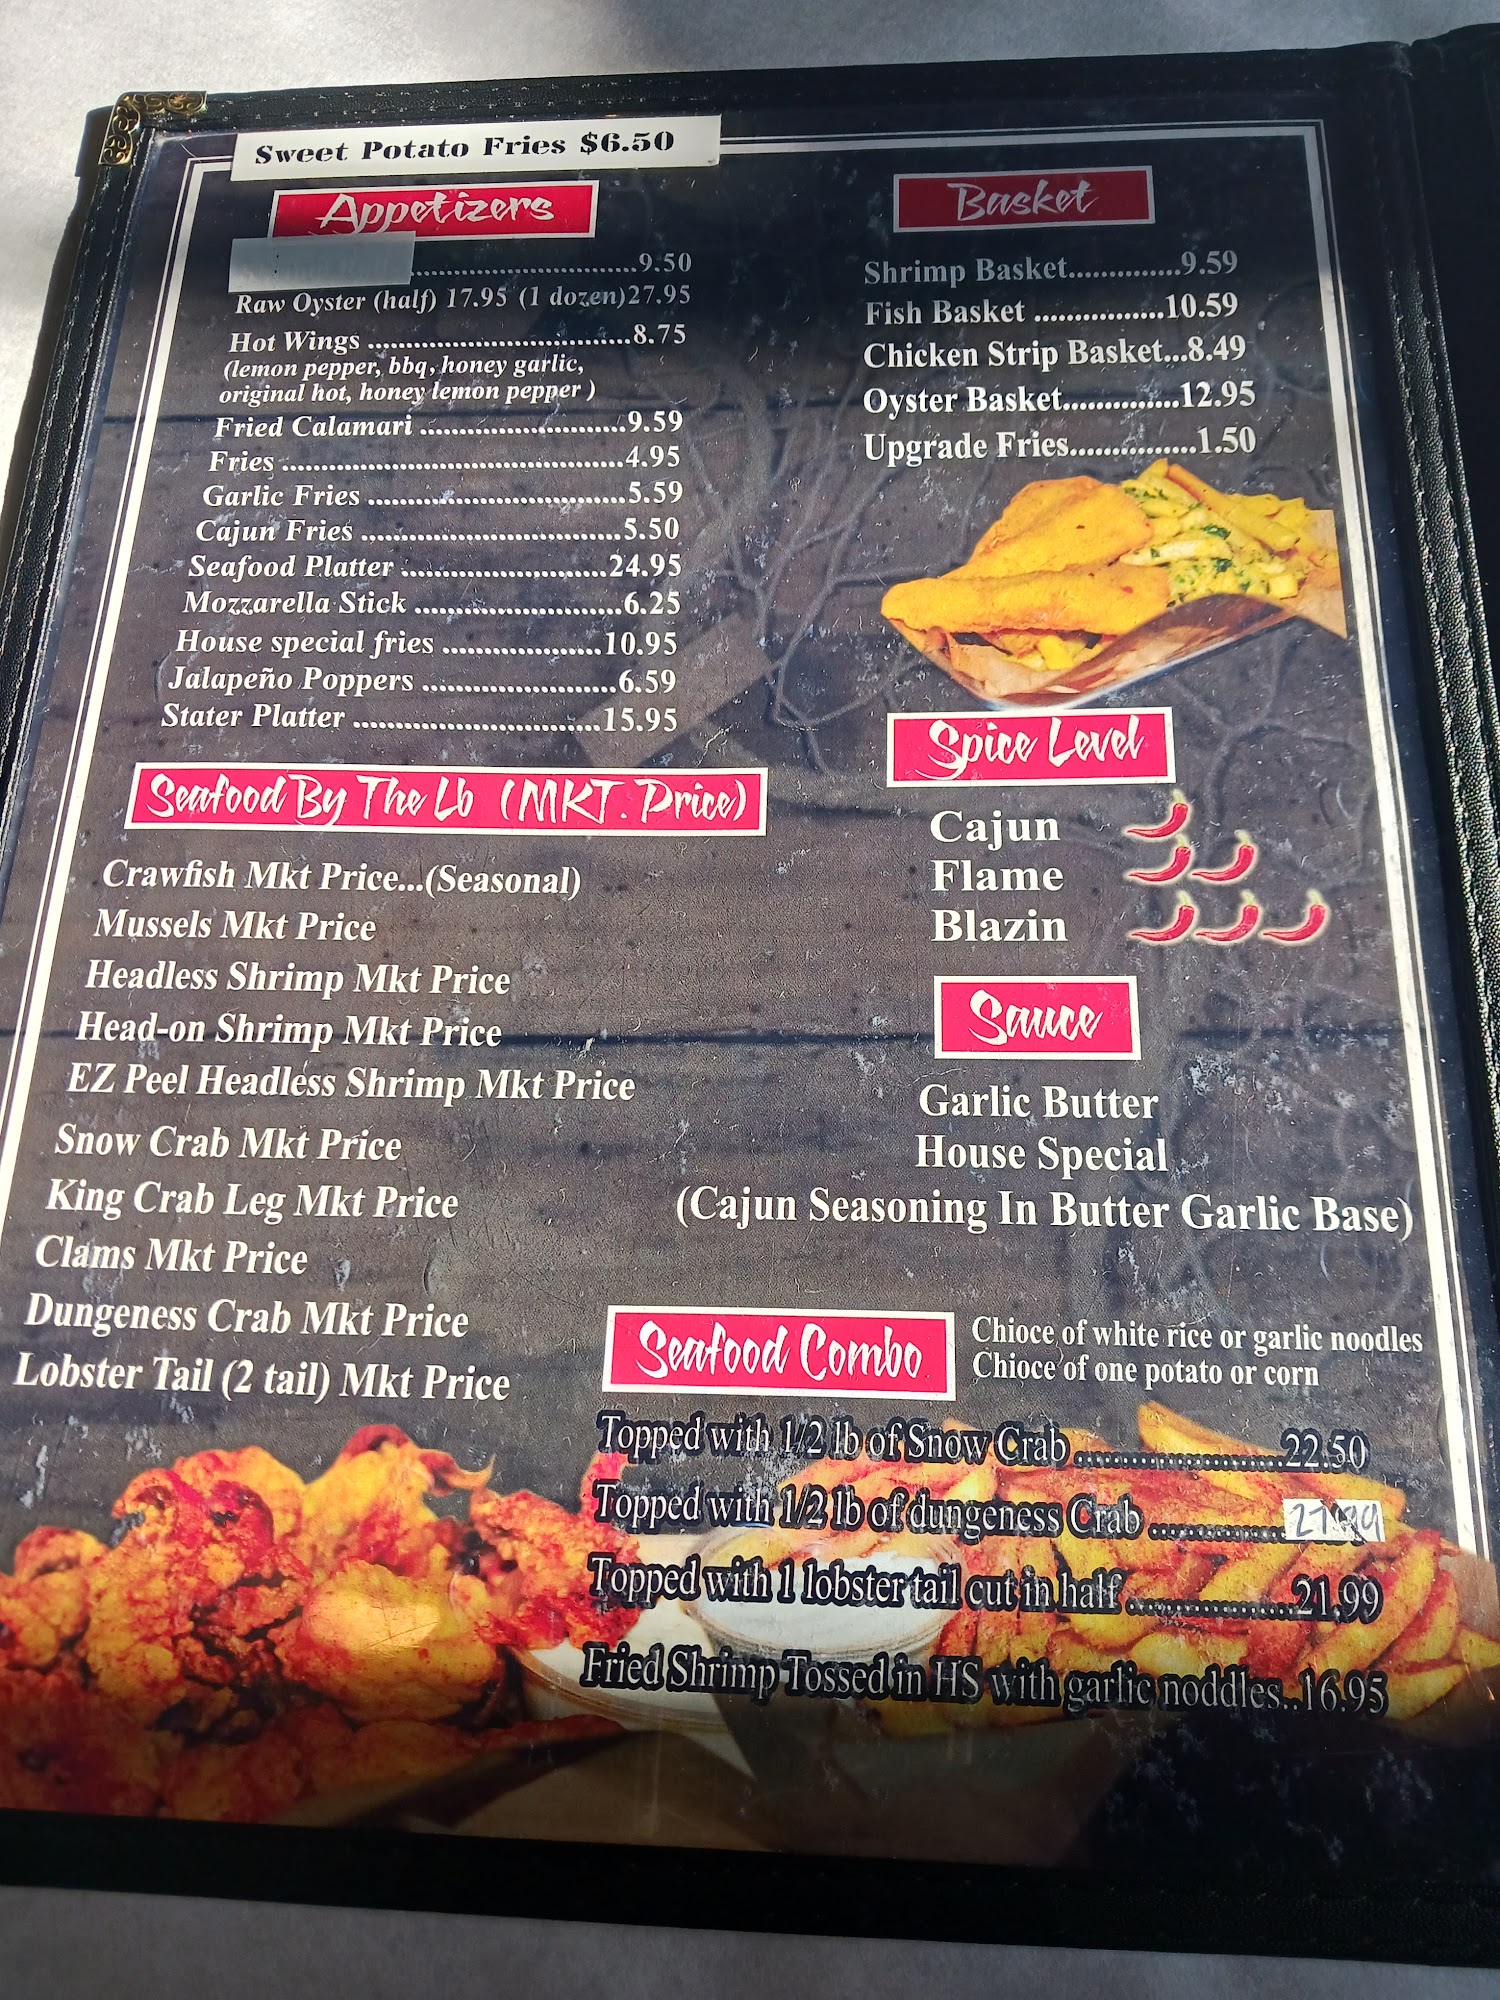 Sweet Potato Fries $6.50
Appetizers
..............................9.50
Raw Oyster (half) 17.95 (1 dozen)27.95
Hot Wings ..................................8.75
(lemon pepper, bbq, honey garlic,
original hot, honey lemon pepper )
Fried Calamari ...........................9.59
Fries ............................................4.95
Garlic Fries .................................5.59
Cajun Fries ..................................5.50
Seafood Platter ...........................24.95
Mozzarella Stick ...........................6.25
House special fries .....................10.95
Jalapeño Poppers .........................6.59
Stater Platter ................................15.95
Seafood By The Lb (MKT. Price)
Crawfish Mkt Price...(Seasonal)
Mussels Mkt Price
Headless Shrimp Mkt Price
Head-on Shrimp Mkt Price
EZ Peel Headless Shrimp Mkt Price
Snow Crab Mkt Price
King Crab Leg Mkt Price
Clams Mkt Price
Dungeness Crab Mkt Price
Lobster Tail (2 tail) Mkt Price
Basket
Shrimp Basket...............9.59
Fish Basket .................10.59
Chicken Strip Basket...8.49
Oyster Basket...............12.95
Upgrade Fries................1.50
Spice Level
Cajun
Flame
Blazin
Sauce
Garlic Butter
House Special
(Cajun Seasoning In Butter Garlic Base)
Seafood Combo
Chioce of white rice or garlic noodles
Chioce of one potato or corn
Topped with 1/2 lb of Snow Crab ......................22.50
Topped with 1/2 lb of dungeness Crab ..............27.99
Topped with 1 lobster tail cut in half ..................21.99
Fried Shrimp Tossed in HS with garlic noddles..16.95